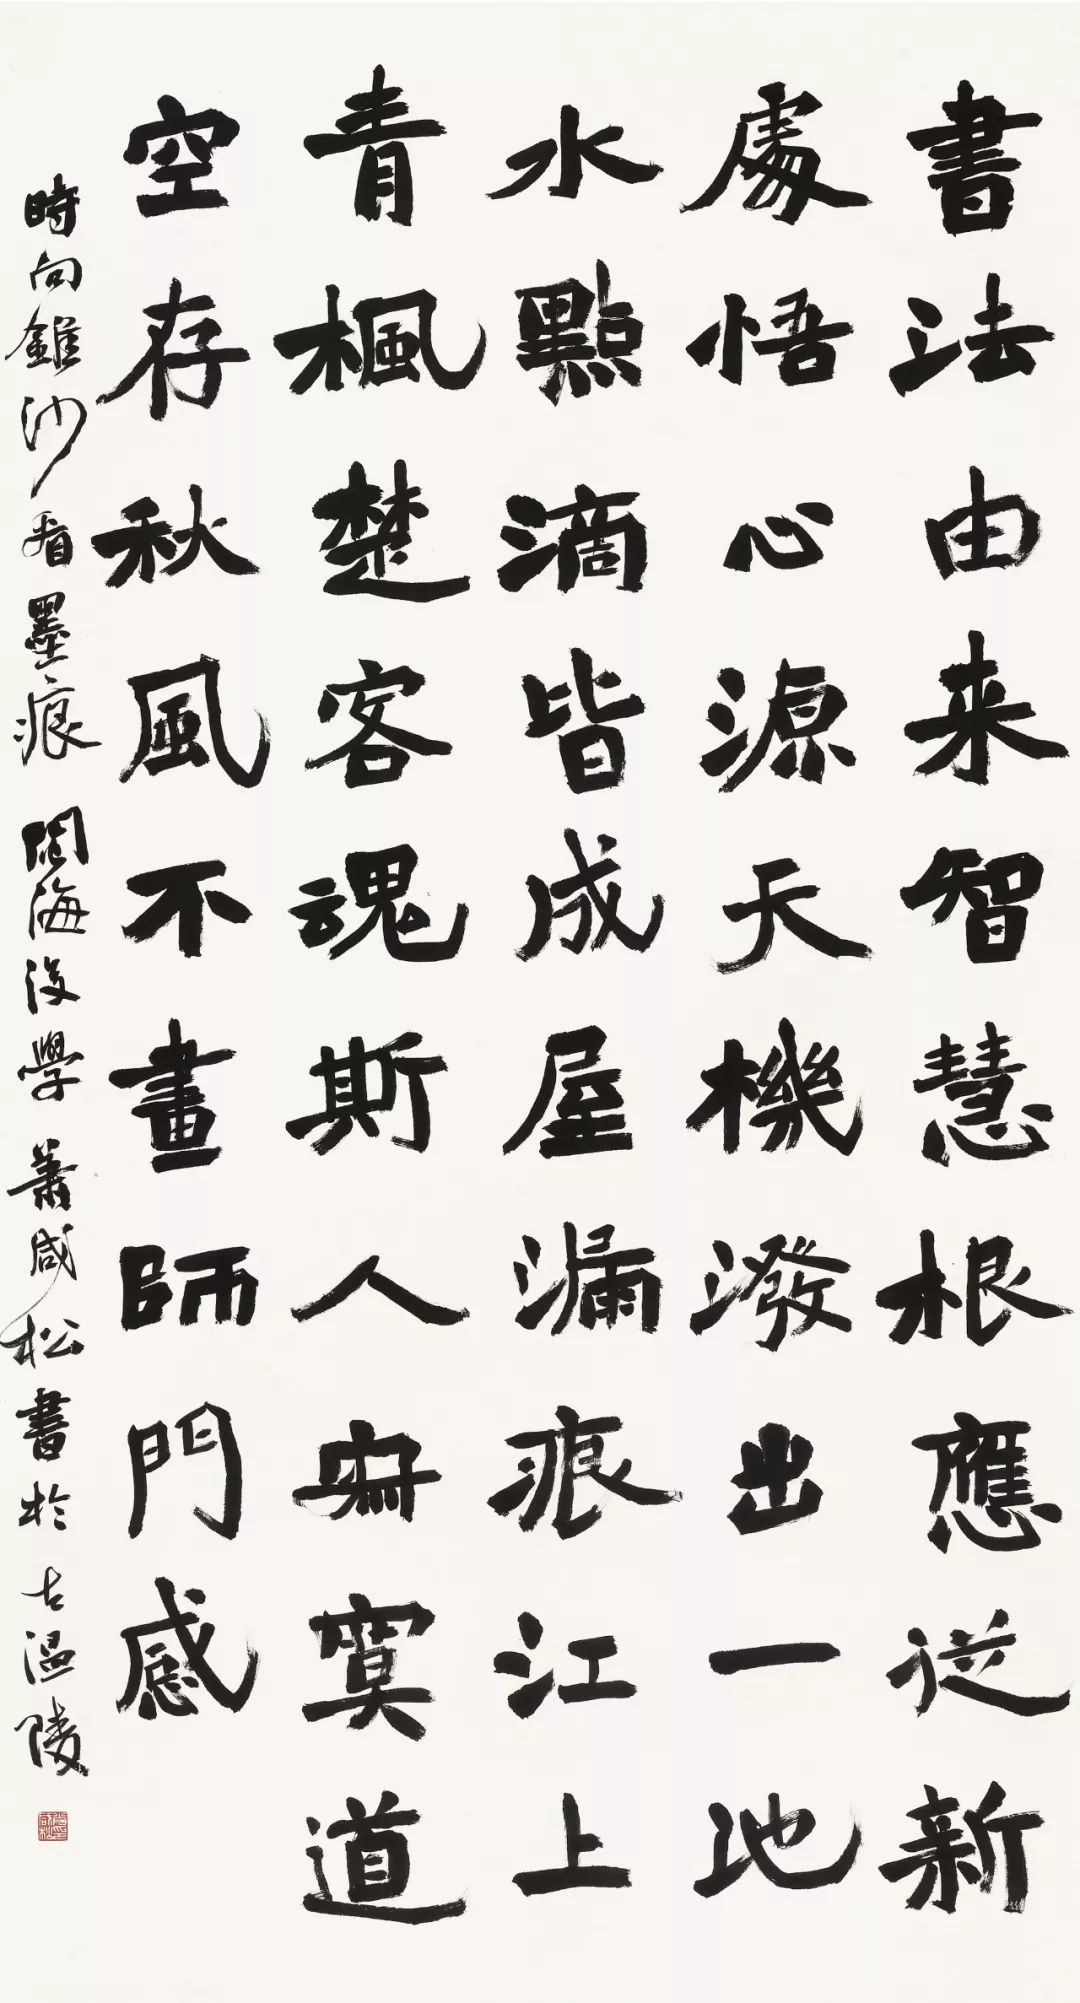 書法由来智慧根應從新
處悟心源天機潑出一地
水點滴皆成屋漏痕江上
青楓楚客魂斯人寂寞道
空存秋風不盡師門感
時向錐沙看墨痕 閩海後學 蕭咸松書於古溫陵